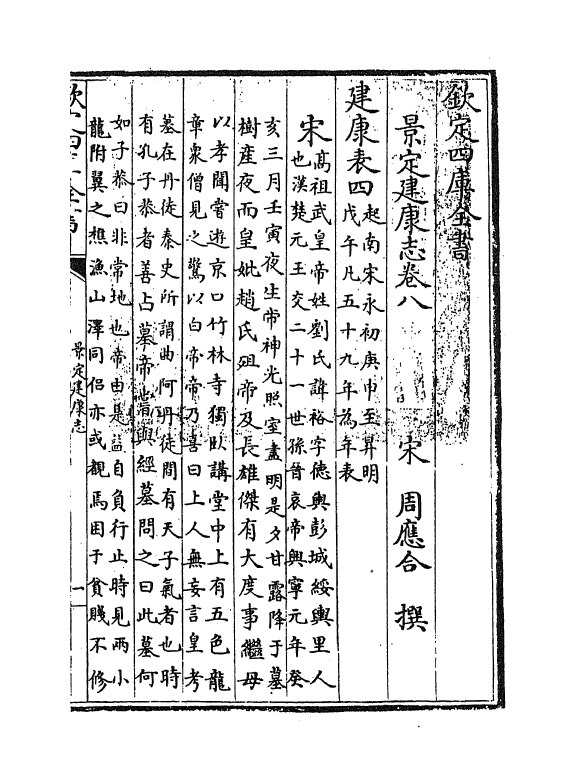 欽定四庫全書
景定建康志卷八
宋 周應合 撰
建康表四 起南宋永初庚申至昇明
戊午凡五十九年為年表
宋 高祖武皇帝姓劉氏諱裕字德輿彭城綏輿里人
也漢楚元王交二十一世孫晉哀帝興寧元年癸
亥三月壬寅夜生帝神光照室盡明是夕甘露降于墓
樹產夜而皇妣趙氏殂帝及長雄傑有大度事繼母
以孝聞嘗遊京口竹林寺獨臥講堂中上有五色龍
章衆僧見之驚以白帝帝乃喜曰上人無妄言皇考
墓在丹徒秦史所謂曲阿丹徒間有天子氣者也時
有孔子恭者善占墓帝嘗與經墓問之曰此墓何
如子恭曰非常地也帝由是益自負行止時見兩小
龍附翼之樵漁山澤同侶亦或覩焉困于貧賤不修
景定建康志
一